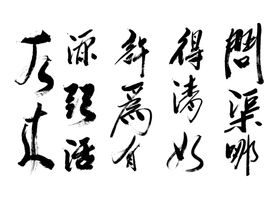 問渠哪
得清如
許爲有
源頭活
水來